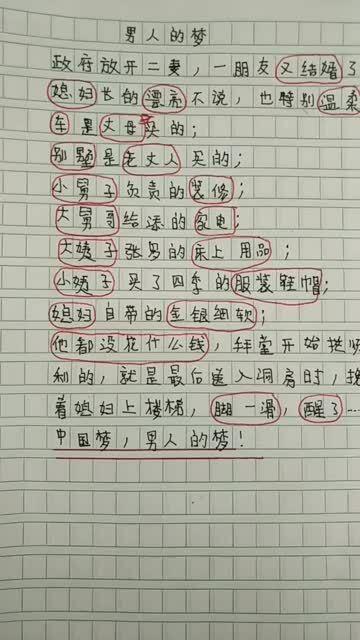 男人的梦
政府放开二妻,一朋友又结婚了
媳妇长的漂亮不说,也特别温柔
车是丈母买的;
别墅是老丈人买的;
小舅子负责的装修;
大舅哥给添的家电;
大姨子张罗的床上用品;
小姨子买了四季的服装鞋帽;
媳妇自带的金银细软;
他都没花什么钱,拜堂开始挺顺
利的,就是最后送入洞房时,
着媳妇上楼梯,脚一滑,醒了…
中国梦,男人的梦!